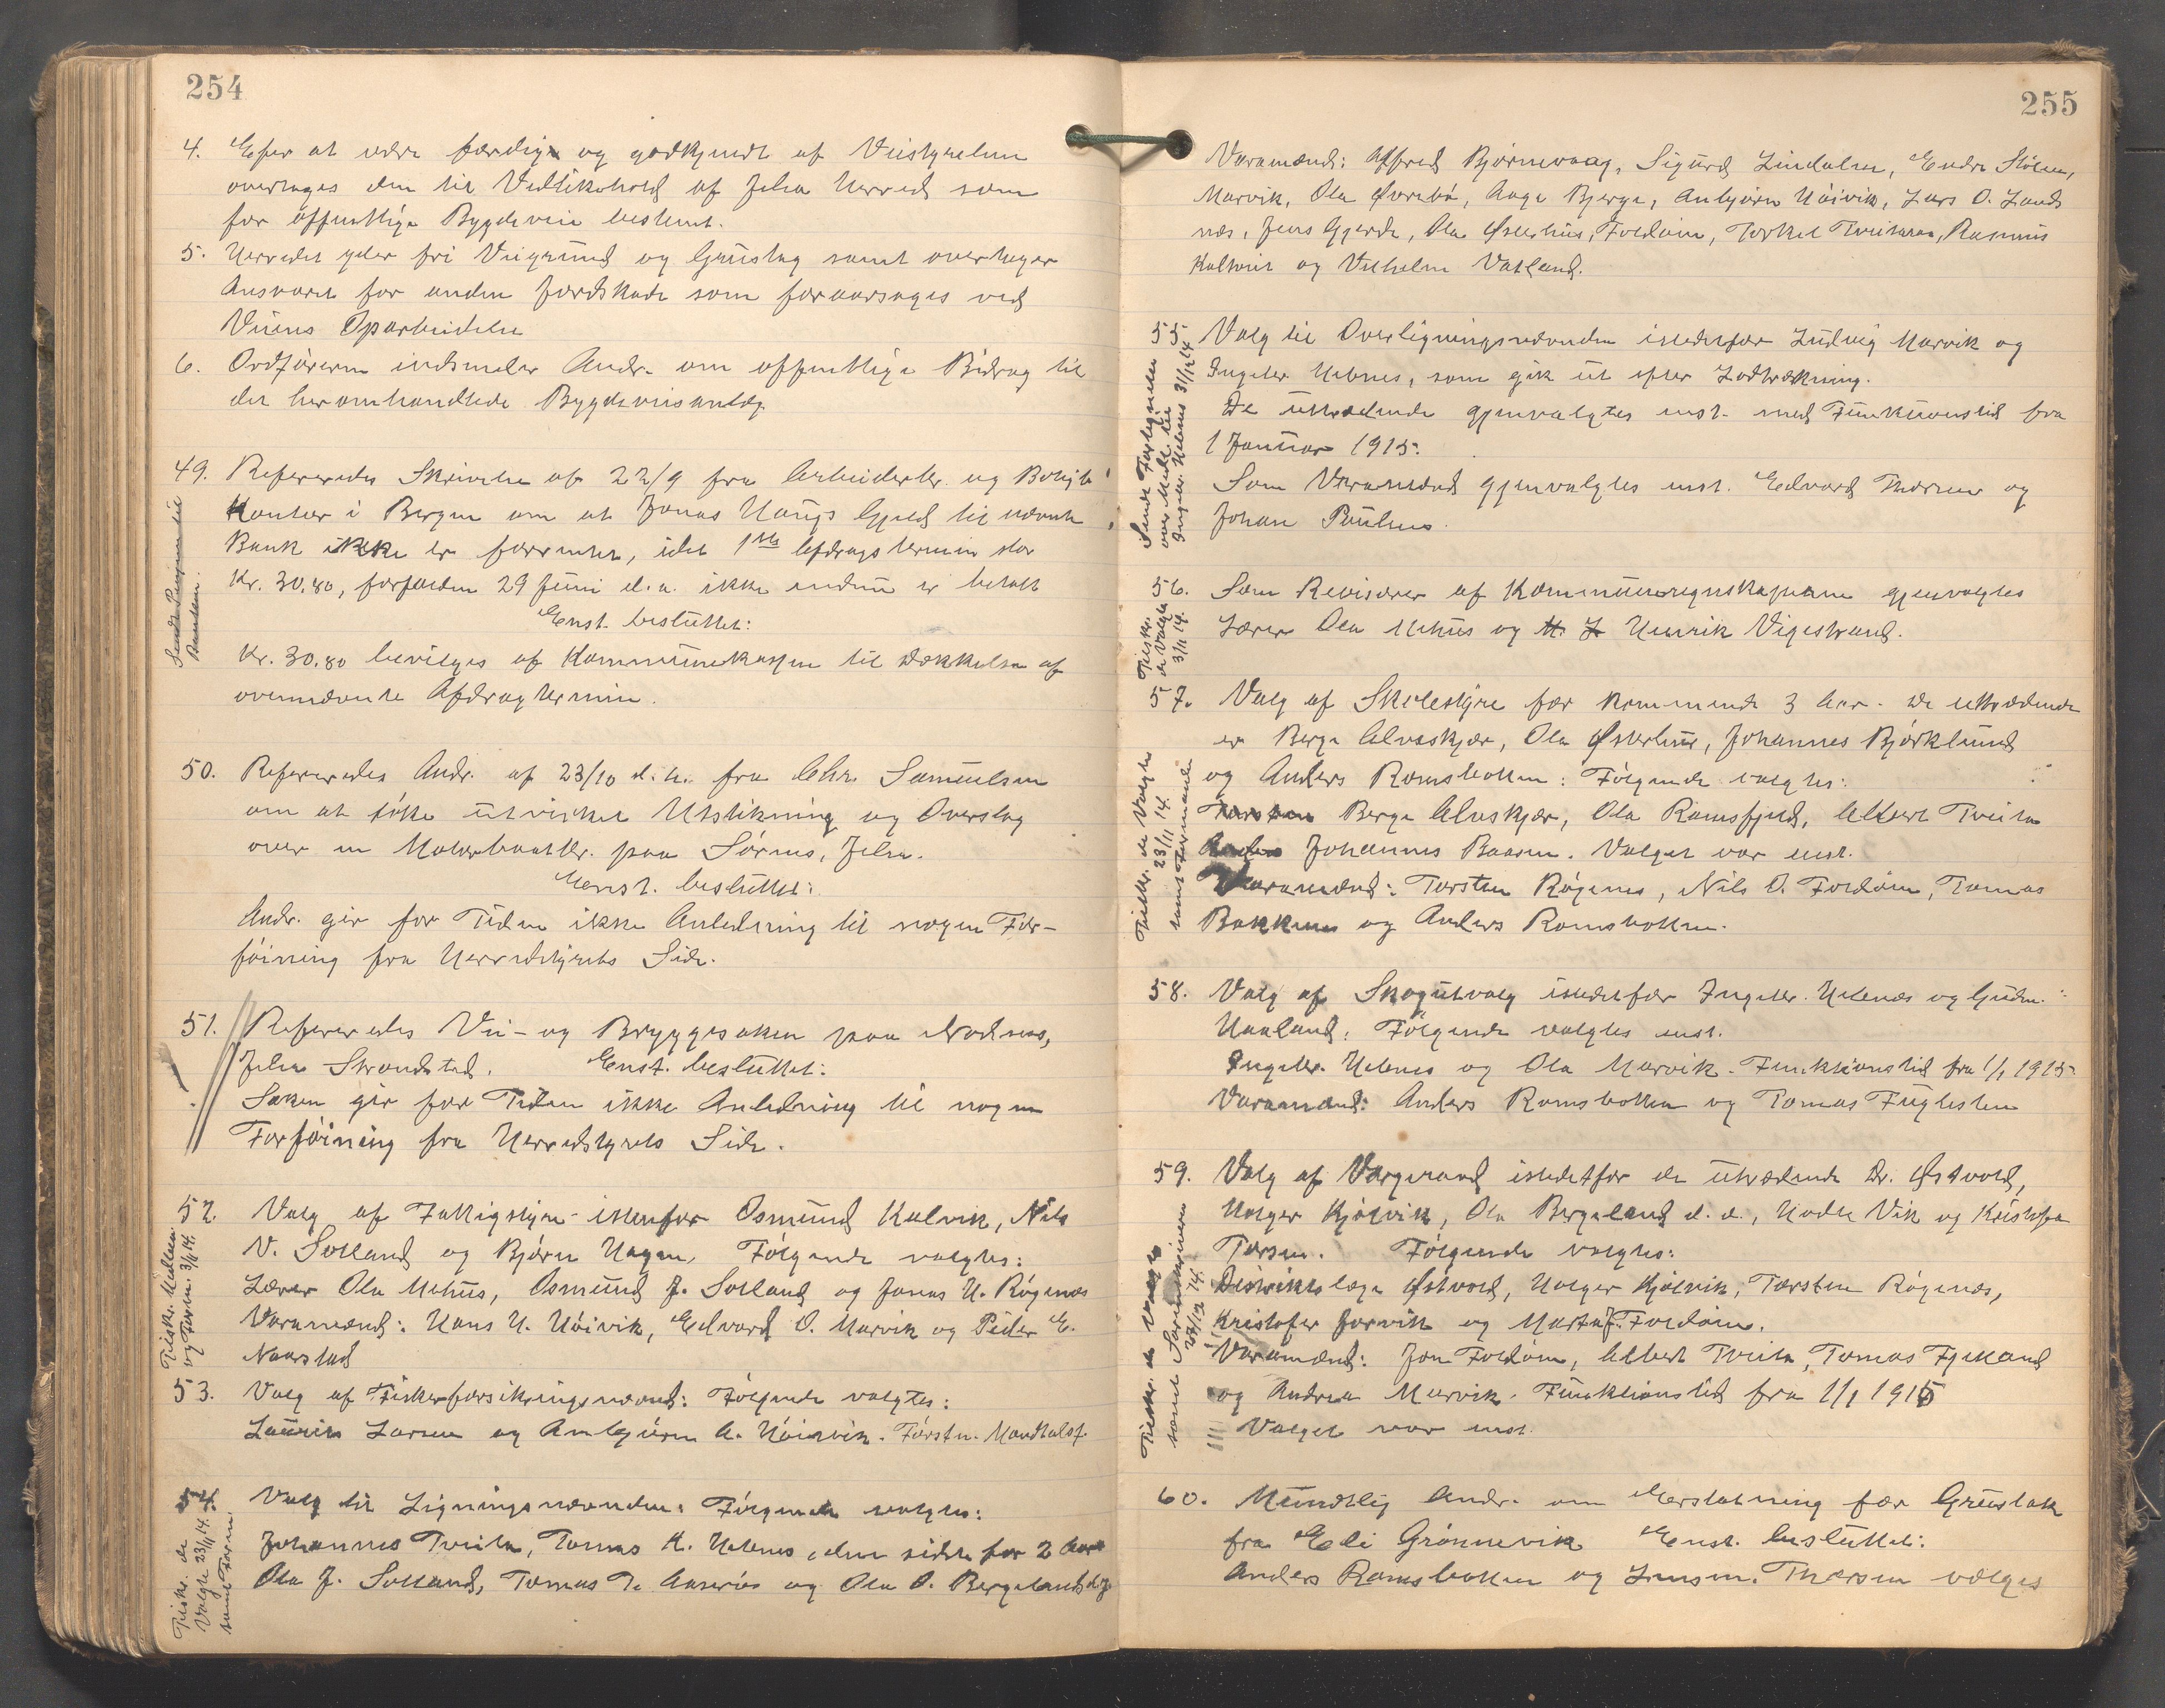 254
4. Efter at være færdig og godkjendt af Veistyrelsen
overtages den til Vedlikehold af Jelsa Herred som
for offentlige Bygdeveie bestemt.
5. Herredet yder fri Veigrund og Grustag samt overtager
Ansvaret for anden Jordskade som foraarsages ved
Veiens Oparbeidelse
6. Ordføreren indsender Andr. om offentlige Bidrag til
det heromhandlede Bygdeveisanlæg.
49. Refereredes Skrivelse af 22/9 fra Arbeiderbr. og Boligb.
Kontor i Bergen om at Jonas Haugs Gjeld til nævnte
Bank ikke er forrentet, idet 1ste Afdragstermin stor
Kr. 30.80, forfalden 29 Juni d.a. ikke endnu er betalt
Enst. besluttet:
Kr. 30.80 bevilges af Kommunekassen til Dækkelse af
ovennævnte Afdragtermin.
Sendt Pengene til
Banken.
50. Refereredes Andr. af 23/10 d.a. fra Chr. Samuelsen
om at søke utvirket Utstikning og Overslag
over en Motorbaatbr. paa Sørnes, Jelsa.
Enst. besluttet:
Andr. gir for Tiden ikke Anledning til nogen For-
føining fra Herredstyrets Side.
51. Refereredes Vei- og Bryggesaken paa Nødnes,
Jelsa Strandsted. Enst. besluttet:
Saken gir for Tiden ikke Anledning til nogen
Forføining fra Herredstyrets Side.
52. Valg af Fattigstyre istenfor Osmund Kalvik, Nils
N. Solland og Bjørn Hagen. Følgende valgtes:
Lærer Ola Mehus, Osmund J. Solland og Jonas H. Røgenæs
Varamænd: Hans H. Høivik, Edvard O. Marvik og Peder E.
Naarstad
Tilskr. Mehus
og Foren. 3/11 14.
53. Valg af Fiskerforsikringsnævnd: Følgende valgtes:
Laurits Larsen og Anbjørn A. Høievik. Førstn. Mandtalsf.
54. Valg til Ligningsnævnden. Følgende valgtes:
Johannes Tveita, Tomas H. Hebnes, den sidste for 2 Aar
Ola J. Solland, Tomas T. og Ola O. Bergeland d.y.
Tilskr. de
Valgte 23/11 14.
samt Foren.
255
Varamænd: Alfred Bjørnevaag, Sigurd Lindalen, Endre Stølen,
Marvik, Ola Øvrebø, Aage Bjerge, Anbjørn Høivik, Lars O. Lands
næs, Jens Gjerde, Ola Østerhus, Foldøin, Torkel Tveitane, Rasmus
og Vilhelm Vatland.
55. Valg til Overligningsnævnden istedetfor Ludvig Marvik og
Ingebr. Hebnes, som gik ut efter Lodtrækning.
De uttrædende gjenvalgtes enst. med Funktionstid fra
1 Januar 1915.
Som Varamænd gjenvalgtes enst. Edvard Thorsen og
Johan Paulsen.
Sendt Fortegnelse
over Medl. til
Ingebr. Hebnes 31/12 14
56. Som Revisorer af Kommuneregnskaperne gjenvalgtes
Lærer Ola Mehus og Henrik Vigestrand.
Tilskr.
de Valgte
3/11 14.
57. Valg af Skolestyre for kommende 3 Aar. De uttrædende
er Berge Alvaskjær, Ola Østerhus, Johannes Bjørklund
og Anders Ramsbotten: Følgende valgtes:
Berge Alvaskjær, Ola Ramsfjeld, Albert Tveita
Johannes Baasen. Valget var enst.
Varamænd: Torsten Røgenes, Nils O. Foldøin, Tomas
Bakken og Anders Ramsbotten.
Tilskr. de Valgte
23/11 14.
samt Formanden
58. Valg af Skogutvalg istedetfor Ingebr. Hebnes og Gudm.
Haaland. Følgende valgtes enst.
Ingebr. Hebnes og Ola Marvik. Funktionstid fra 1/1 1915
Varamænd: Anders Ramsbotten og Tomas Fuglesten
59. Valg af Vergeraad istedetfor de uttrædende Dr. Østvold,
Holger Kjølvik, Ola Bergeland d.e., Hodle Vik og Kristofer
Torsen. Følgende valgtes:
Distriktslæge Østvold, Holger Kjølvik, Torsten Røgenæs,
Kristofer Jorvik og Marta J. Foldøin.
Varamænd: Jon Foldøin, Albert Tveita, Tomas Fjelland
og Andrea Marvik. Funktionstid fra 1/1 1915
Valget var enst.
Tilskr. de Valgte
samt Sorenskriveren
23/12 14.
60. Mundtlig Andr. om Erstatning for Grustak
fra Eli Grønnevik Enst. besluttet:
Anders Ramsbotten og Lensm. Thorsen vælges